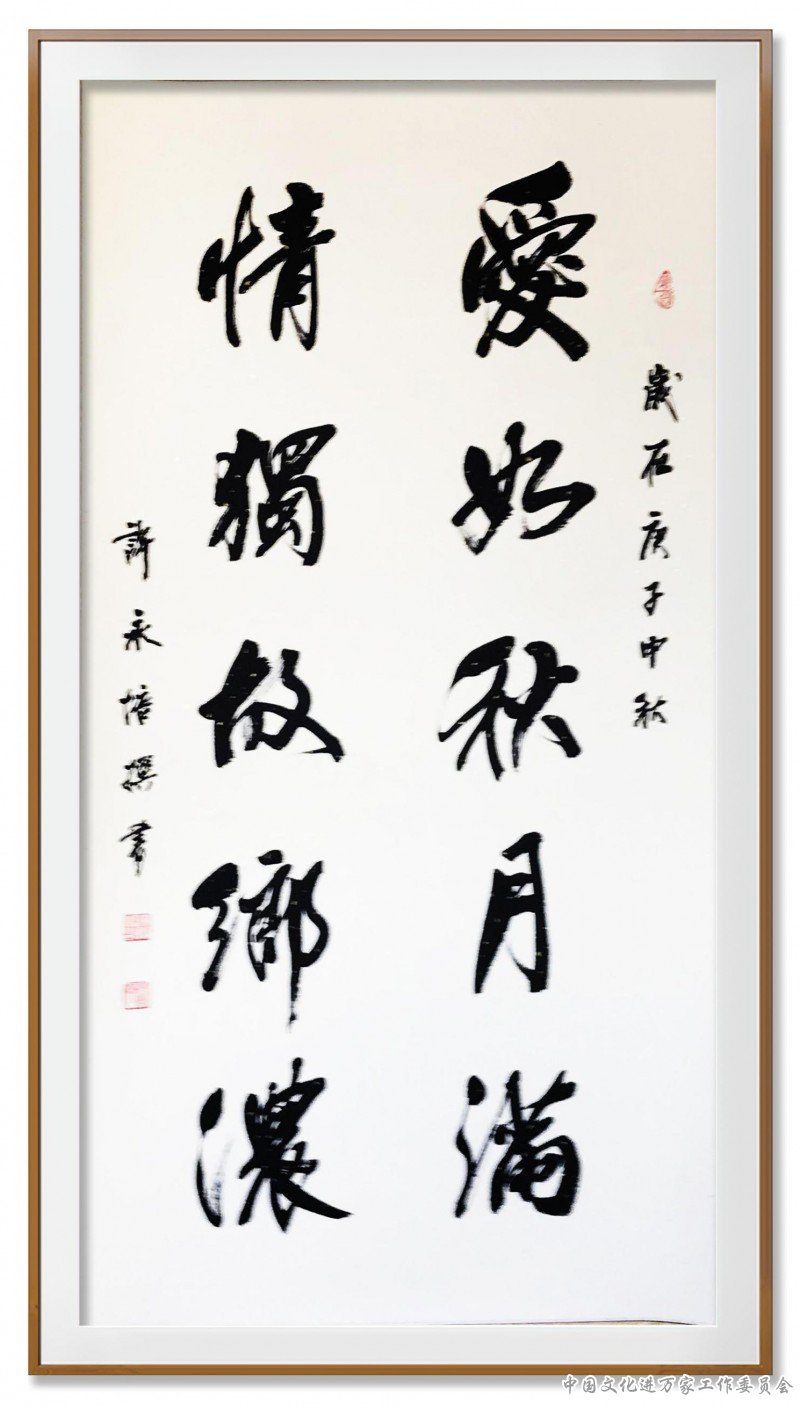 歲在庚子中秋
愛如秋月滿
情獨故鄉濃
許永培撰書
中国文化进万家工作委员会